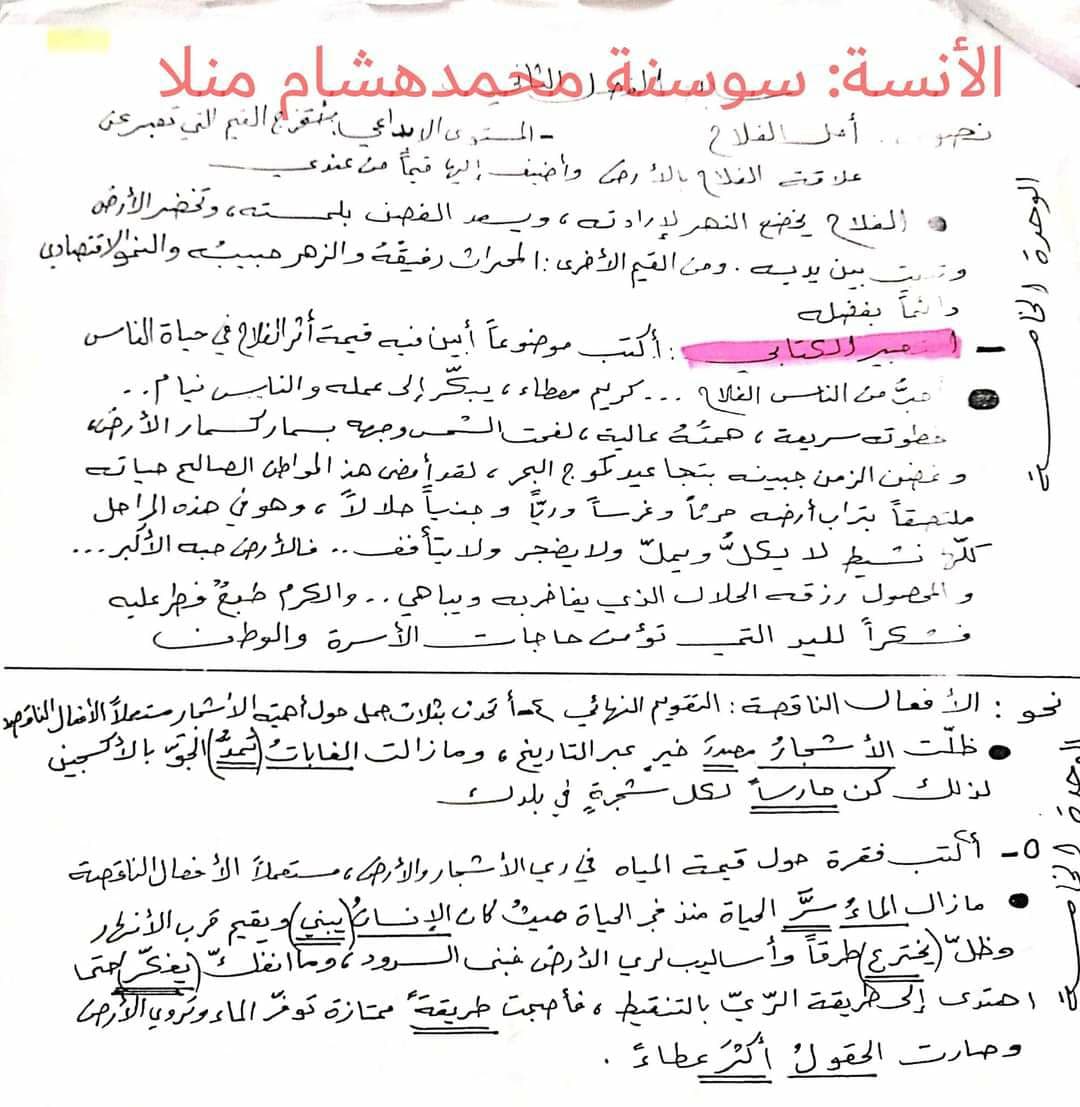 الأنسة: سوسنة محمدهشام منلا
الفصل الثاني
أمل الفلاح - المستوى الإبداعي: أستخرج القيم التي تعبر عن
علاقة الفلاح بالأرض وأضيف إليها قيماً من عندي
الفلاح يخضع النهر لإرادته، ويسعد الغصن بلمسته، وتخضر الأرض
بين يديه. ومن القيم الأخرى: المحراث رفيقهُ والزهر حبيبُه والنمو الاقتصادي
دائماً بفضله
- التعبير الكتابي: أكتب موضوعاً أبين فيه قيمة أثر الفلاح في حياة الناس
أحبُّ من الناس الفلاح... كريم معطاء، يبكّر إلى عمله والناس نيام..
خطوته سريعة، همتُهُ عالية، لفحت الشمس وجهه بسمار كسمار الأرض،
وغضن الزمن جبينه بتجاعيد كموج البحر، لقد أمضى هذا المواطن الصالح حياته
ملتصقاً بتراب أرضه حرثاً وغرساً وريّاً وجنياً حلالاً، وهو في هذه المراحل
كلّها نشيط لا يكلُّ ويملّ ولا يضجر ولا يتأفف.. فالأرض حبه الأكبر...
والمحصول رزقه الحلال الذي يفاخر به ويباهي.. والكرم طبعٌ فطر عليه
فشكراً لليد التي تؤمن حاجات الأسرة والوطن
الوحدة الخامسة
نحو: الأفعال الناقصة: التقويم النهائي ٤- أتحدث بثلاث جمل حول أهمية الأشجار مستعملاً الأفعال الناقصة
ظلّت الأشجارُ مصدرَ خيرٍ عبر التاريخ، ومازالت الغاباتُ (تمدُّ) الجوّ بالأكسجين
لذلك كن حارساً لكل شجرةٍ في بلدك
٥- أكتب فقرة حول قيمة المياه في ري الأشجار والأرض، مستعملاً الأفعال الناقصة
مازال الماءُ سرَّ الحياة منذ فجر الحياة حيثُ كان الإنسانُ (يبني) ويقيم قرب الأنهار
وظلّ (يخترع) طرقاً وأساليب لري الأرض فبنى السدود، وما انفكَّ (يفكّر) حتى
اهتدى إلى طريقة الرّيّ بالتنقيط، فأصبحت طريقةً ممتازة توفّر الماء وتروي الأرض
وصارت الحقولُ أكثرَ عطاءً.